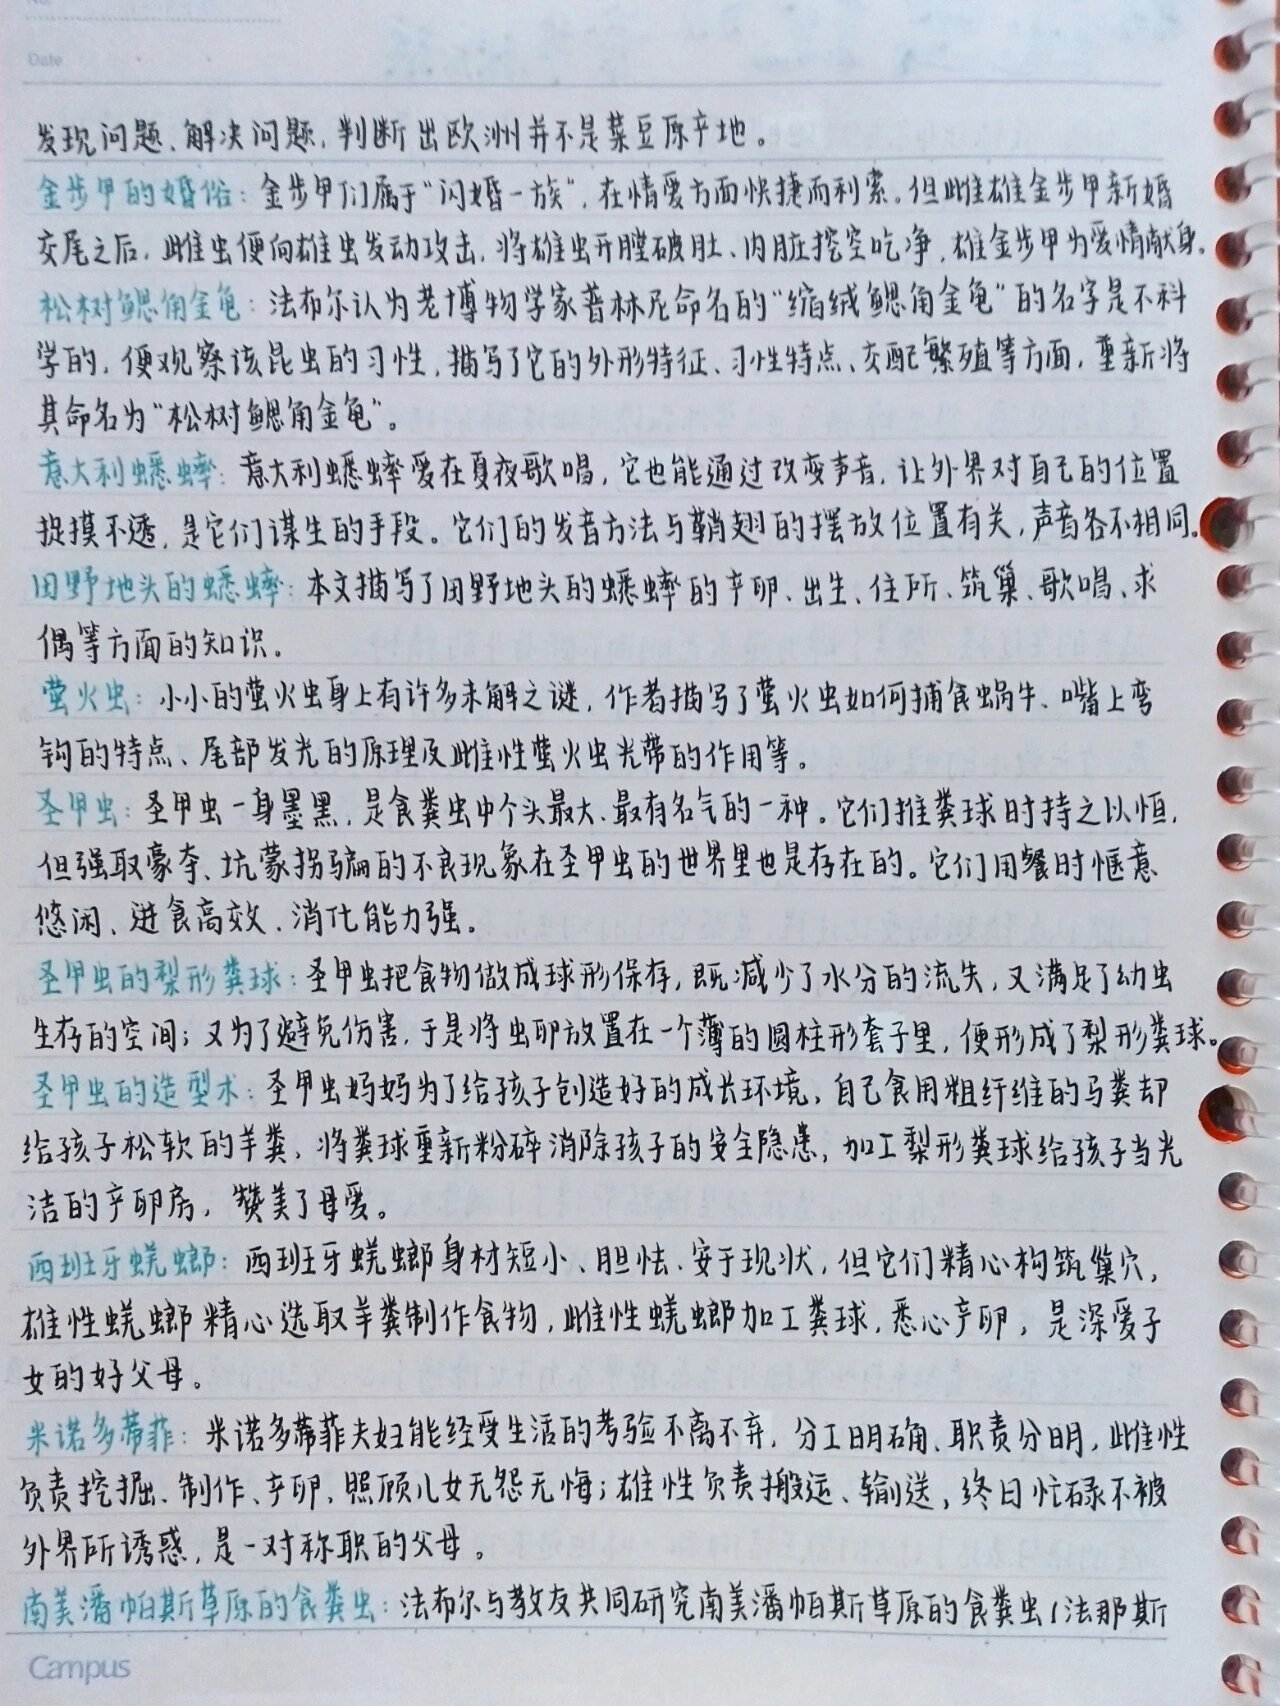 Date
发现问题、解决问题,判断出欧洲并不是菜豆原产地。
金步甲的婚俗:金步甲们属于“闪婚一族”,在情爱方面快捷而利索。但雌雄金步甲新婚
交尾之后,雌虫便向雄虫发动攻击,将雄虫开膛破肚、内脏挖空吃净,雄金步甲为爱情献身。
松树鳃角金龟:法布尔认为老博物学家普林尼命名的“缩绒鳃角金龟”的名字是不科
学的,便观察该昆虫的习性,描写了它的外形特征、习性特点、交配繁殖等方面,重新将
其命名为“松树鳃角金龟”。
意大利蟋蟀:意大利蟋蟀爱在夏夜歌唱,它也能通过改变声音,让外界对自己的位置
捉摸不透,是它们谋生的手段。它们的发音方法与鞘翅的摆放位置有关,声音各不相同。
田野地头的蟋蟀:本文描写了田野地头的蟋蟀的产卵、出生、住所、筑巢、歌唱、求
偶等方面的知识。
萤火虫:小小的萤火虫身上有许多未解之谜,作者描写了萤火虫如何捕食蜗牛、嘴上弯
钩的特点、尾部发光的原理及雌性萤火虫光带的作用等。
圣甲虫:圣甲虫一身墨黑,是食粪虫中个头最大、最有名气的一种。它们推粪球时持之以恒,
但强取豪夺、坑蒙拐骗的不良现象在圣甲虫的世界里也是存在的。它们用餐时惬意
悠闲、进食高效、消化能力强。
圣甲虫的梨形粪球:圣甲虫把食物做成球形保存,既减少了水分的流失,又满足了幼虫
生存的空间;又为了避免伤害,于是将虫卵放置在一个薄的圆柱形套子里,便形成了梨形粪球。
圣甲虫的造型术:圣甲虫妈妈为了给孩子创造好的成长环境,自己食用粗纤维的马粪却
给孩子松软的羊粪,将粪球重新粉碎消除孩子的安全隐患,加工梨形粪球给孩子当光
洁的产卵房,赞美了母爱。
西班牙蜣螂:西班牙蜣螂身材短小、胆怯、安于现状,但它们精心构筑巢穴,
雄性蜣螂精心选取羊粪制作食物,雌性蜣螂加工粪球,悉心产卵,是深爱子
女的好父母。
米诺多蒂菲:米诺多蒂菲夫妇能经受生活的考验不离不弃,分工明确、职责分明,雌性
负责挖掘、制作、产卵、照顾儿女无怨无悔;雄性负责搬运、输送,终日忙碌不被
外界所诱惑,是一对称职的父母。
南美潘帕斯草原的食粪虫:法布尔与教友共同研究南美潘帕斯草原的食粪虫(法那斯
Campus